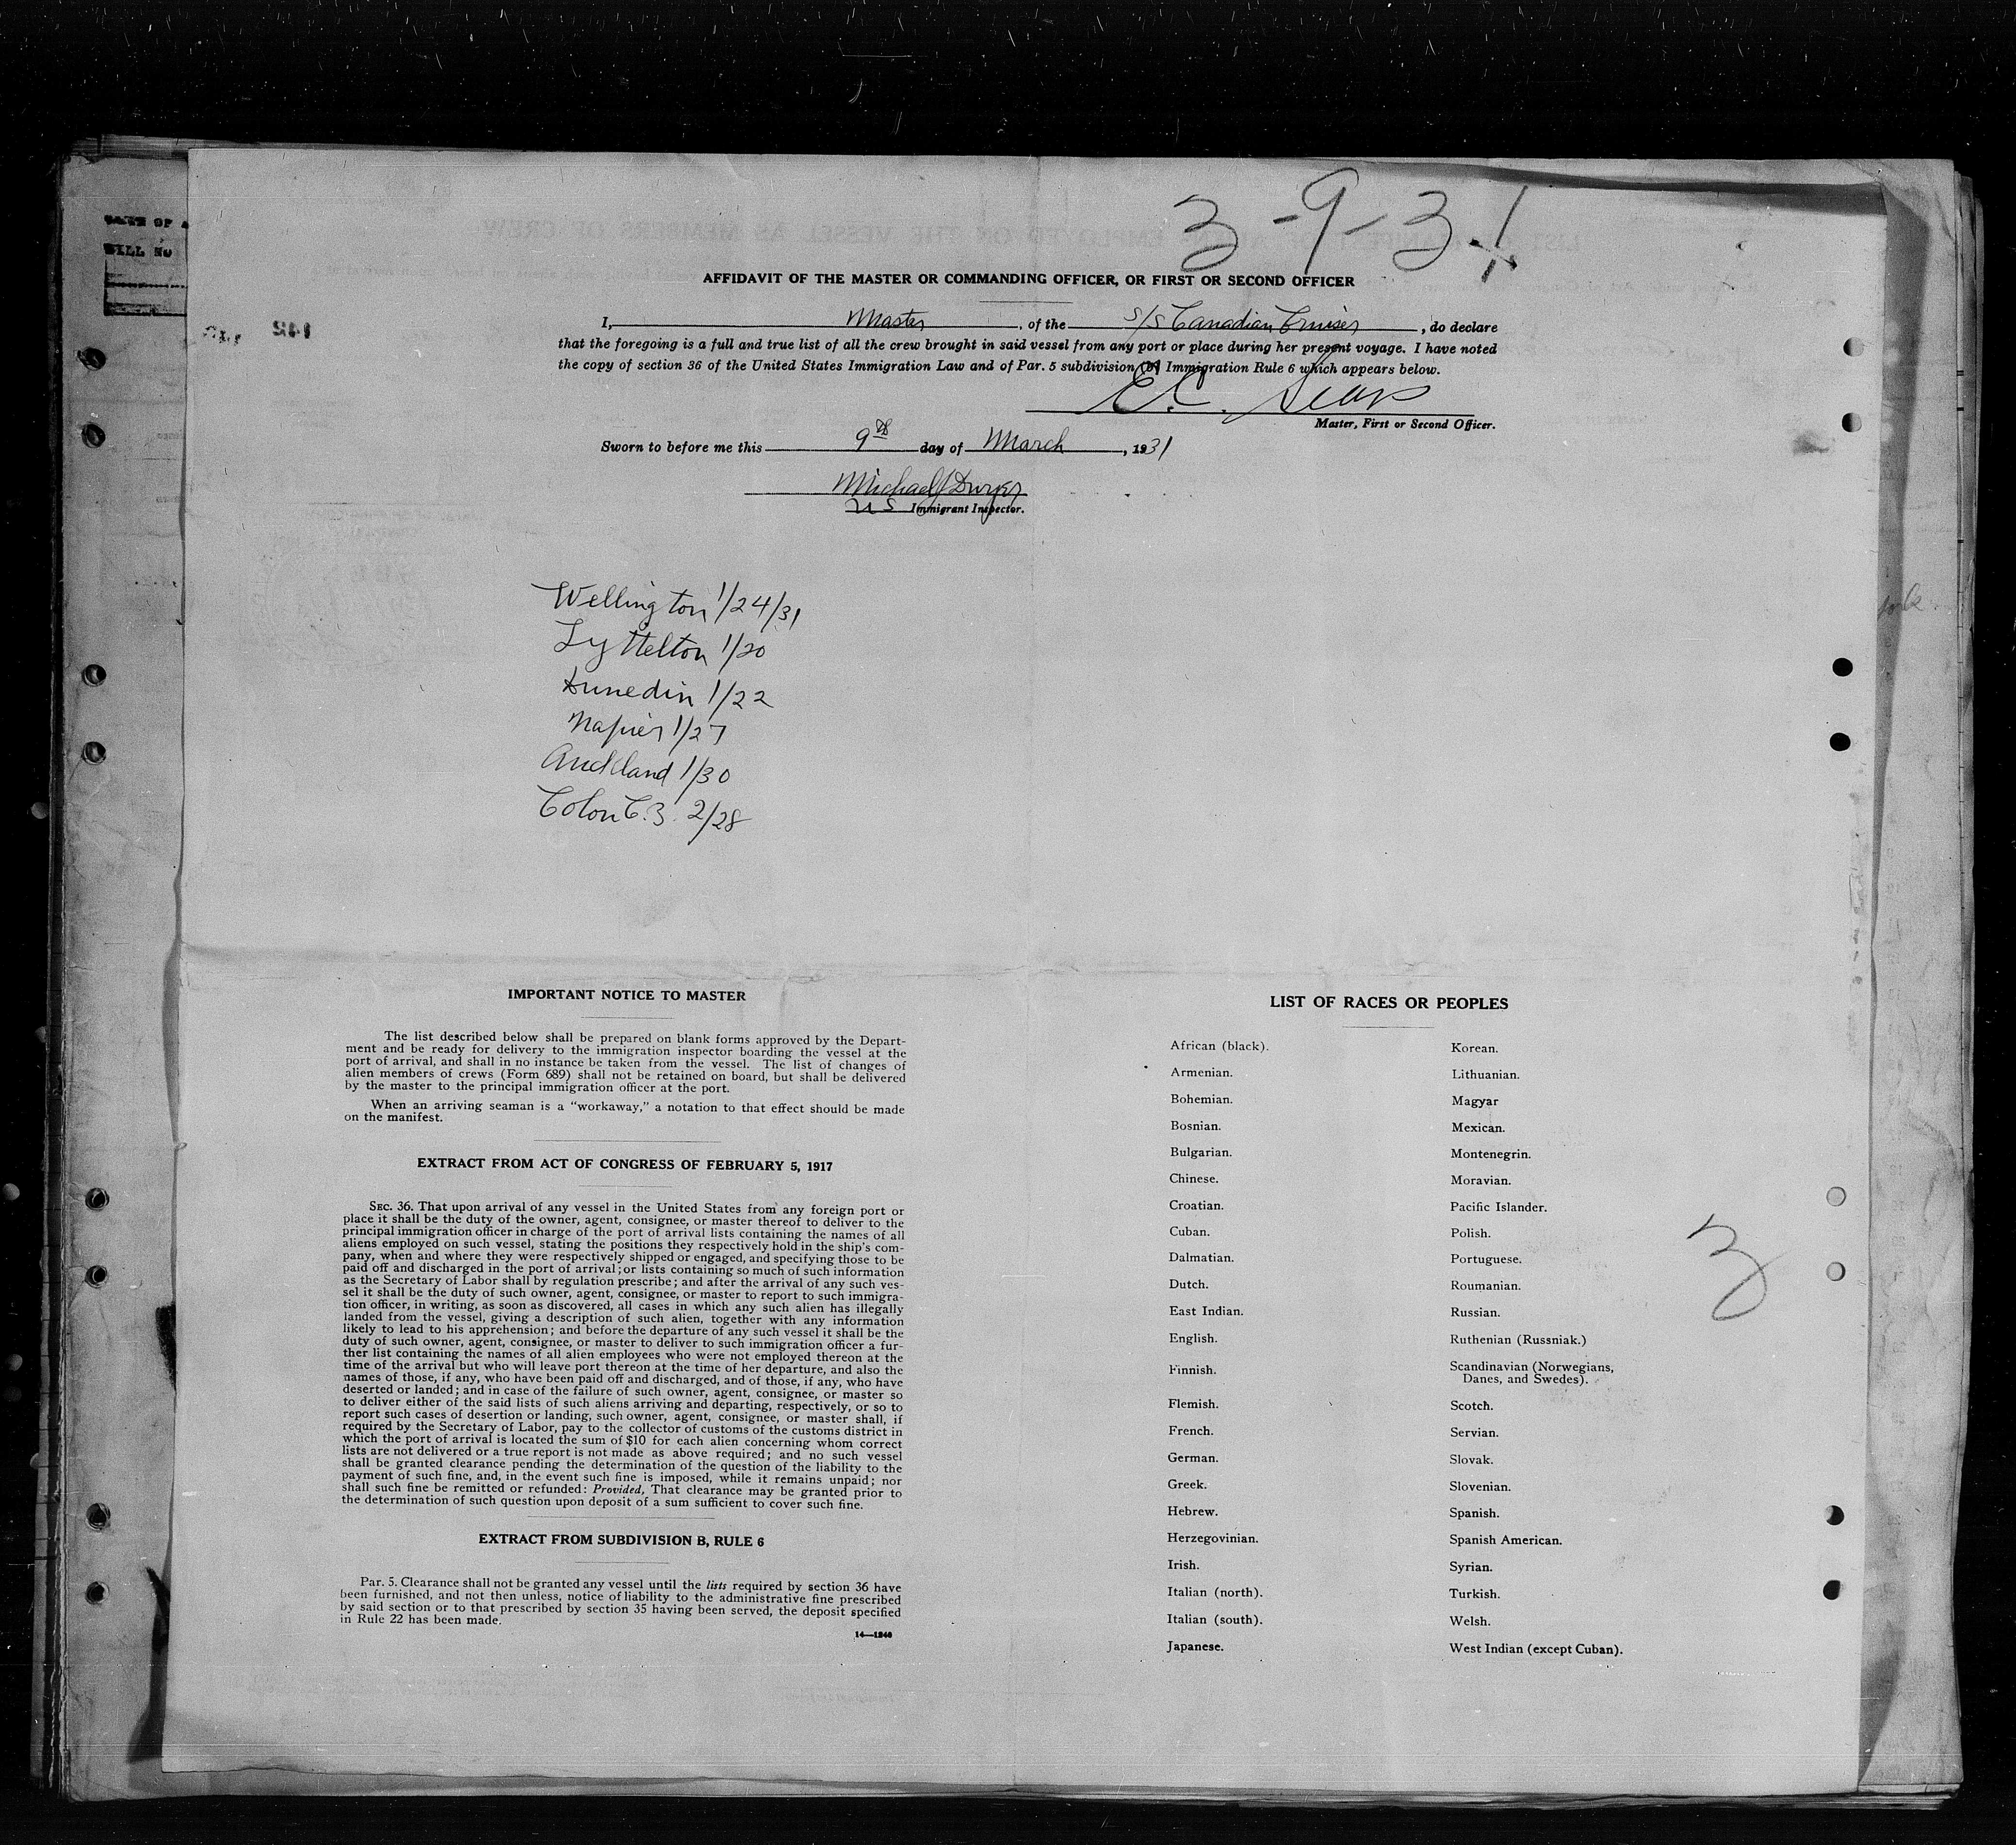 3-9-31
AFFIDAVIT OF THE MASTER OR COMMANDING OFFICER, OR FIRST OR SECOND OFFICER
I, Master, of the S/S Canadian Cruiser, do declare
that the foregoing is a full and true list of all the crew brought in said vessel from any port or place during her present voyage. I have noted
the copy of section 36 of the United States Immigration Law and of Par. 5 subdivision (b) Immigration Rule 6 which appears below.
E.C. Sears
Master, First or Second Officer.
Sworn to before me this 9th day of March, 1931
Michael J Dwyer
U S Immigrant Inspector.
Wellington 1/24/31
Lyttelton 1/20
Dunedin 1/22
Napier 1/27
Auckland 1/30
Colon C.Z. 2/28
IMPORTANT NOTICE TO MASTER
The list described below shall be prepared on blank forms approved by the Depart-
ment and be ready for delivery to the immigration inspector boarding the vessel at the
port of arrival, and shall in no instance be taken from the vessel. The list of changes of
alien members of crews (Form 689) shall not be retained on board, but shall be delivered
by the master to the principal immigration officer at the port.
When an arriving seaman is a "workaway," a notation to that effect should be made
on the manifest.
EXTRACT FROM ACT OF CONGRESS OF FEBRUARY 5, 1917
SEC. 36. That upon arrival of any vessel in the United States from any foreign port or
place it shall be the duty of the owner, agent, consignee, or master thereof to deliver to the
principal immigration officer in charge of the port of arrival lists containing the names of all
aliens employed on such vessel, stating the positions they respectively hold in the ship's com-
pany, when and where they were respectively shipped or engaged, and specifying those to be
paid off and discharged in the port of arrival; or lists containing so much of such information
as the Secretary of Labor shall by regulation prescribe; and after the arrival of any such ves-
sel it shall be the duty of such owner, agent, consignee, or master to report to such immigra-
tion officer, in writing, as soon as discovered, all cases in which any such alien has illegally
landed from the vessel, giving a description of such alien, together with any information
likely to lead to his apprehension; and before the departure of any such vessel it shall be the
duty of such owner, agent, consignee, or master to deliver to such immigration officer a fur-
ther list containing the names of all alien employees who were not employed thereon at the
time of the arrival but who will leave port thereon at the time of her departure, and also the
names of those, if any, who have been paid off and discharged, and of those, if any, who have
deserted or landed; and in case of the failure of such owner, agent, consignee, or master so
to deliver either of the said lists of such aliens arriving and departing, respectively, or so to
report such cases of desertion or landing, such owner, agent, consignee, or master shall, if
required by the Secretary of Labor, pay to the collector of customs of the customs district in
which the port of arrival is located the sum of $10 for each alien concerning whom correct
lists are not delivered or a true report is not made as above required; and no such vessel
shall be granted clearance pending the determination of the question of the liability to the
payment of such fine, and, in the event such fine is imposed, while it remains unpaid; nor
shall such fine be remitted or refunded: Provided, That clearance may be granted prior to
the determination of such question upon deposit of a sum sufficient to cover such fine.
EXTRACT FROM SUBDIVISION B, RULE 6
Par. 5. Clearance shall not be granted any vessel until the lists required by section 36 have
been furnished, and not then unless, notice of liability to the administrative fine prescribed
by said section or to that prescribed by section 35 having been served, the deposit specified
in Rule 22 has been made.
14—1240
LIST OF RACES OR PEOPLES
African (black).
Armenian.
Bohemian.
Bosnian.
Bulgarian.
Chinese.
Croatian.
Cuban.
Dalmatian.
Dutch.
East Indian.
English.
Finnish.
Flemish.
French.
German.
Greek.
Hebrew.
Herzegovinian.
Irish.
Italian (north).
Italian (south).
Japanese.
Korean.
Lithuanian.
Magyar
Mexican.
Montenegrin.
Moravian.
Pacific Islander.
Polish.
Portuguese.
Roumanian.
Russian.
Ruthenian (Russniak.)
Scandinavian (Norwegians,
Danes, and Swedes).
Scotch.
Servian.
Slovak.
Slovenian.
Spanish.
Spanish American.
Syrian.
Turkish.
Welsh.
West Indian (except Cuban).
3